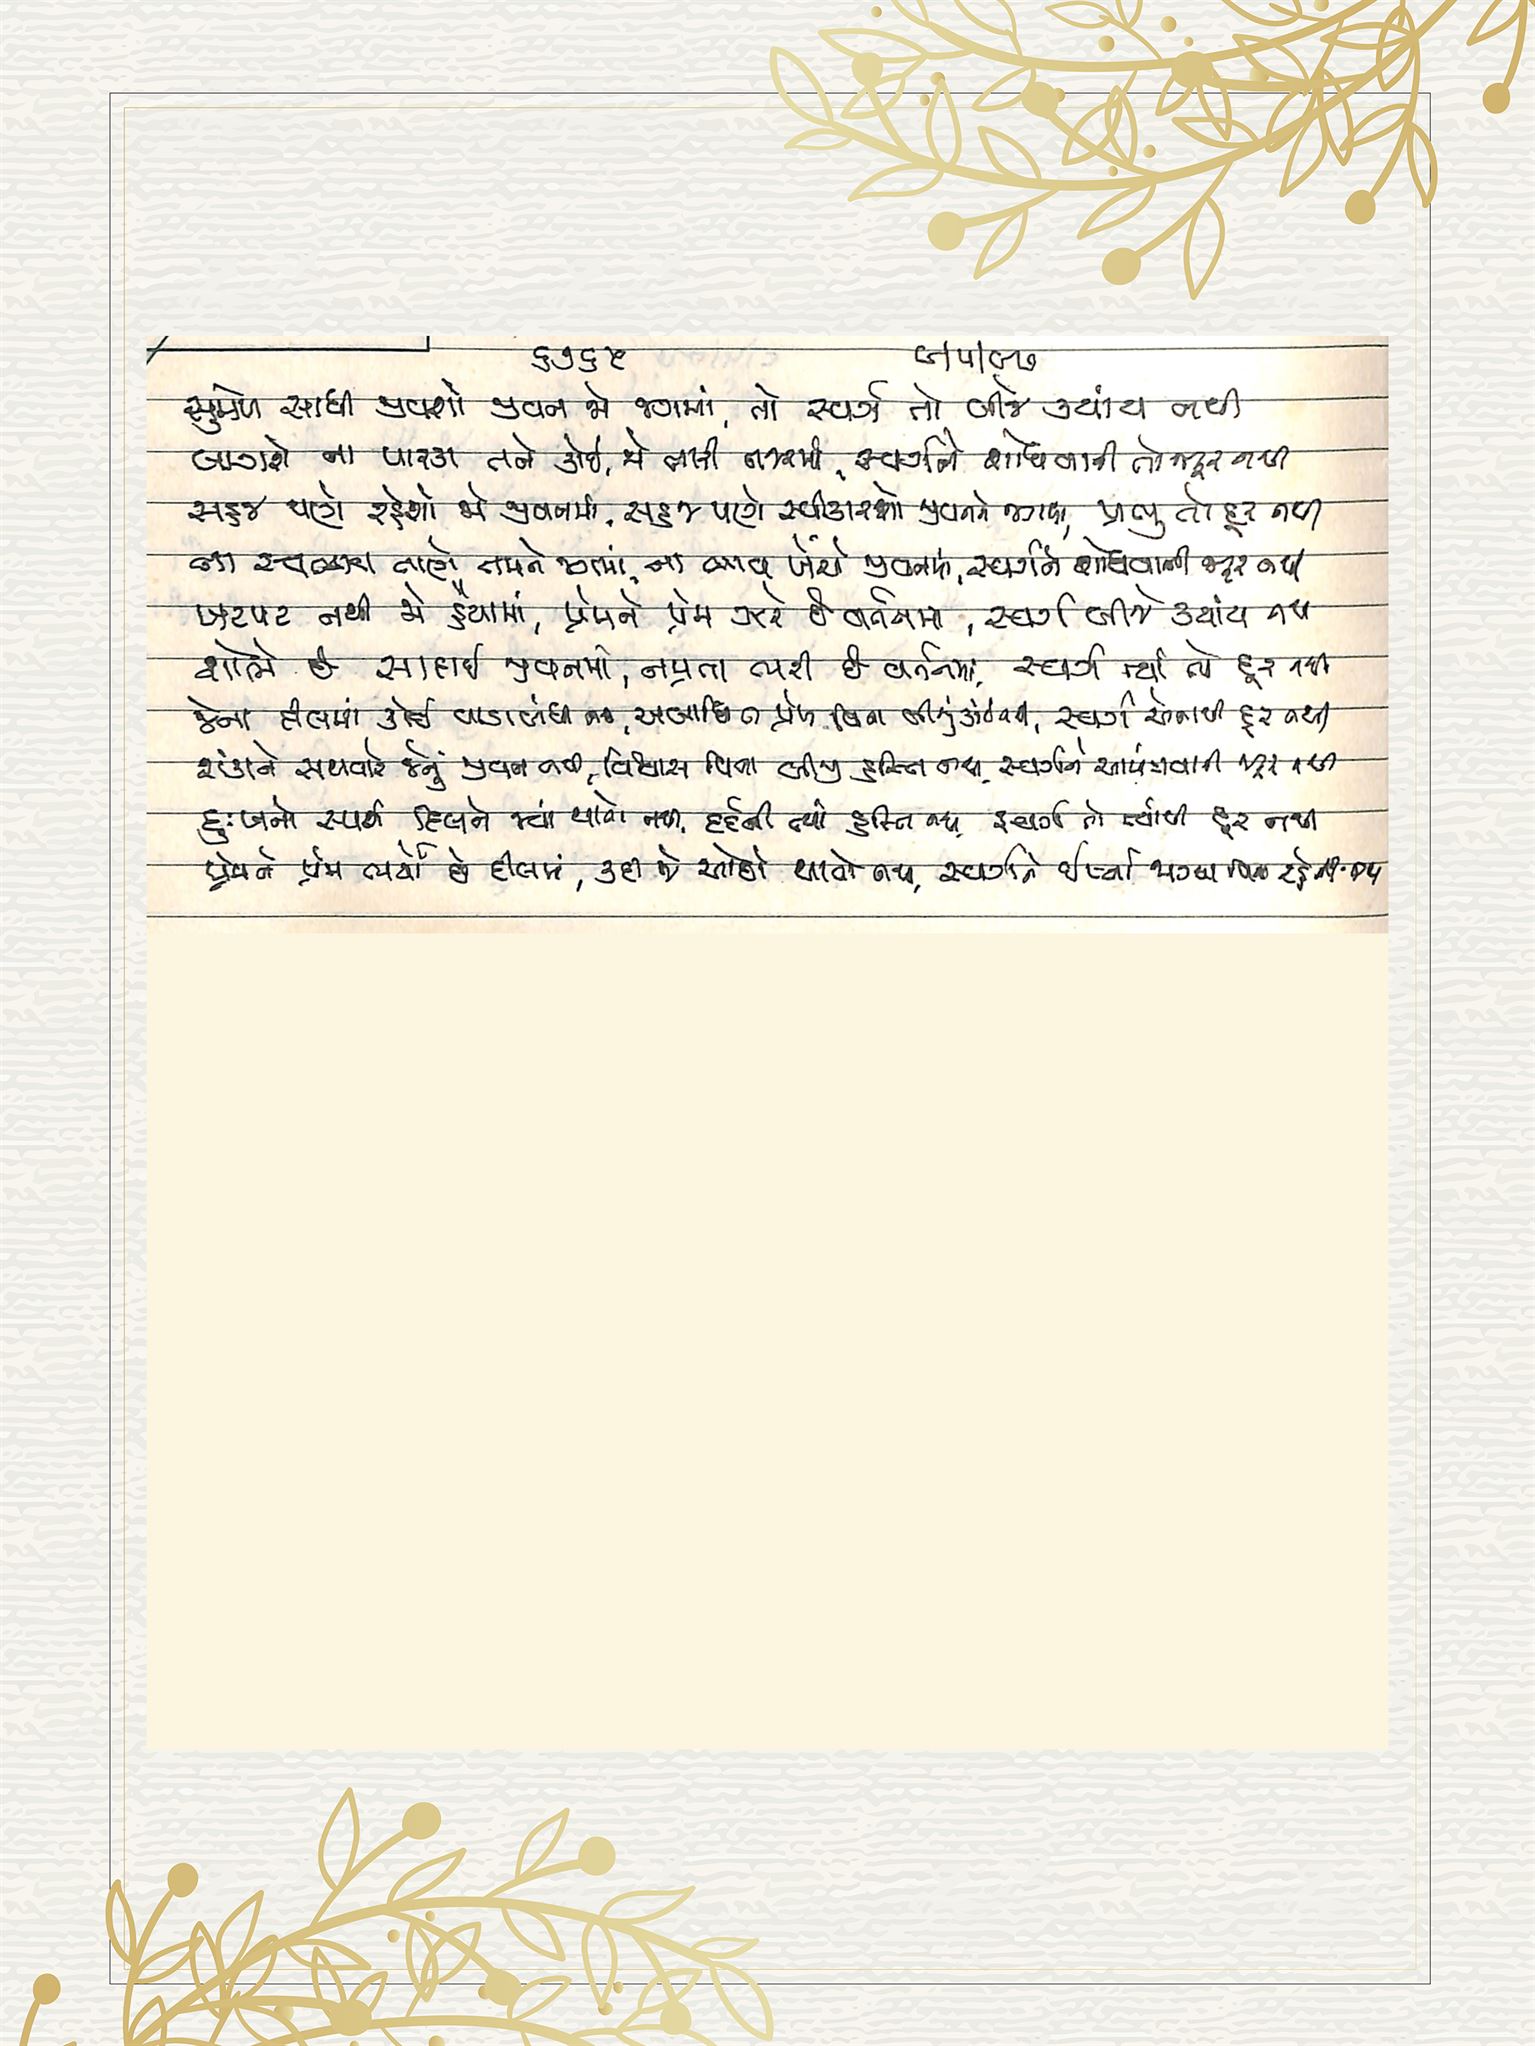 ૬૭૬૬ ૯|૫|૯૭
સુમેળ સાધી જીવશો જીવન જો જગમાં, તો સ્વર્ગ તો બીજે ક્યાંય નથી
લાગશે ના પારકા તને કોઈ, જો તારી નજરમાં, સ્વર્ગને શોધવાની તો જરૂર નથી
સહજ પણે રહેશો જો જીવનમાં, સહજ પણે સ્વીકારશો જીવનને જગમાં, પ્રભુ તો દૂર નથી
ના સ્વભાવ તાણે તમને જગમાં, ના ભાવ ખેંચે જીવનમાં, સ્વર્ગને શોધવાની જરૂર નથી
ખટપટ નથી જો હૈયામાં, પ્રેમને પ્રેમ ઝરે છે વર્તનમાં, સ્વર્ગ બીજે ક્યાંય નથી
શોભે છે સાદાઈ જીવનમાં, નમ્રતા ભરી છે વર્તનમાં, સ્વર્ગ ત્યાં તો દૂર નથી
જેના દીલમાં કોઈ વાડા બંધી નથી, અબાધિત પ્રેમ વિના બીજું કાંઈ નથી, સ્વર્ગ એનાથી દૂર નથી
શંકાને સથવારે જેનું જીવન નથી, વિશ્વાસ વિના બીજી હસ્તિ નથી, સ્વર્ગને આમંત્રવાની જરૂર નથી
દુઃખનો સ્પર્શ દિલને જ્યાં થાતો નથી, દર્દની ત્યાં હસ્તિ નથી, સ્વર્ગ તો ત્યાંથી દૂર નથી
પ્રેમને પ્રેમ ભર્યો છે દીલમાં, કદી જે ઓછો થાતો નથી, સ્વર્ગને ઈર્ષ્યા વિના રહેતી નથી